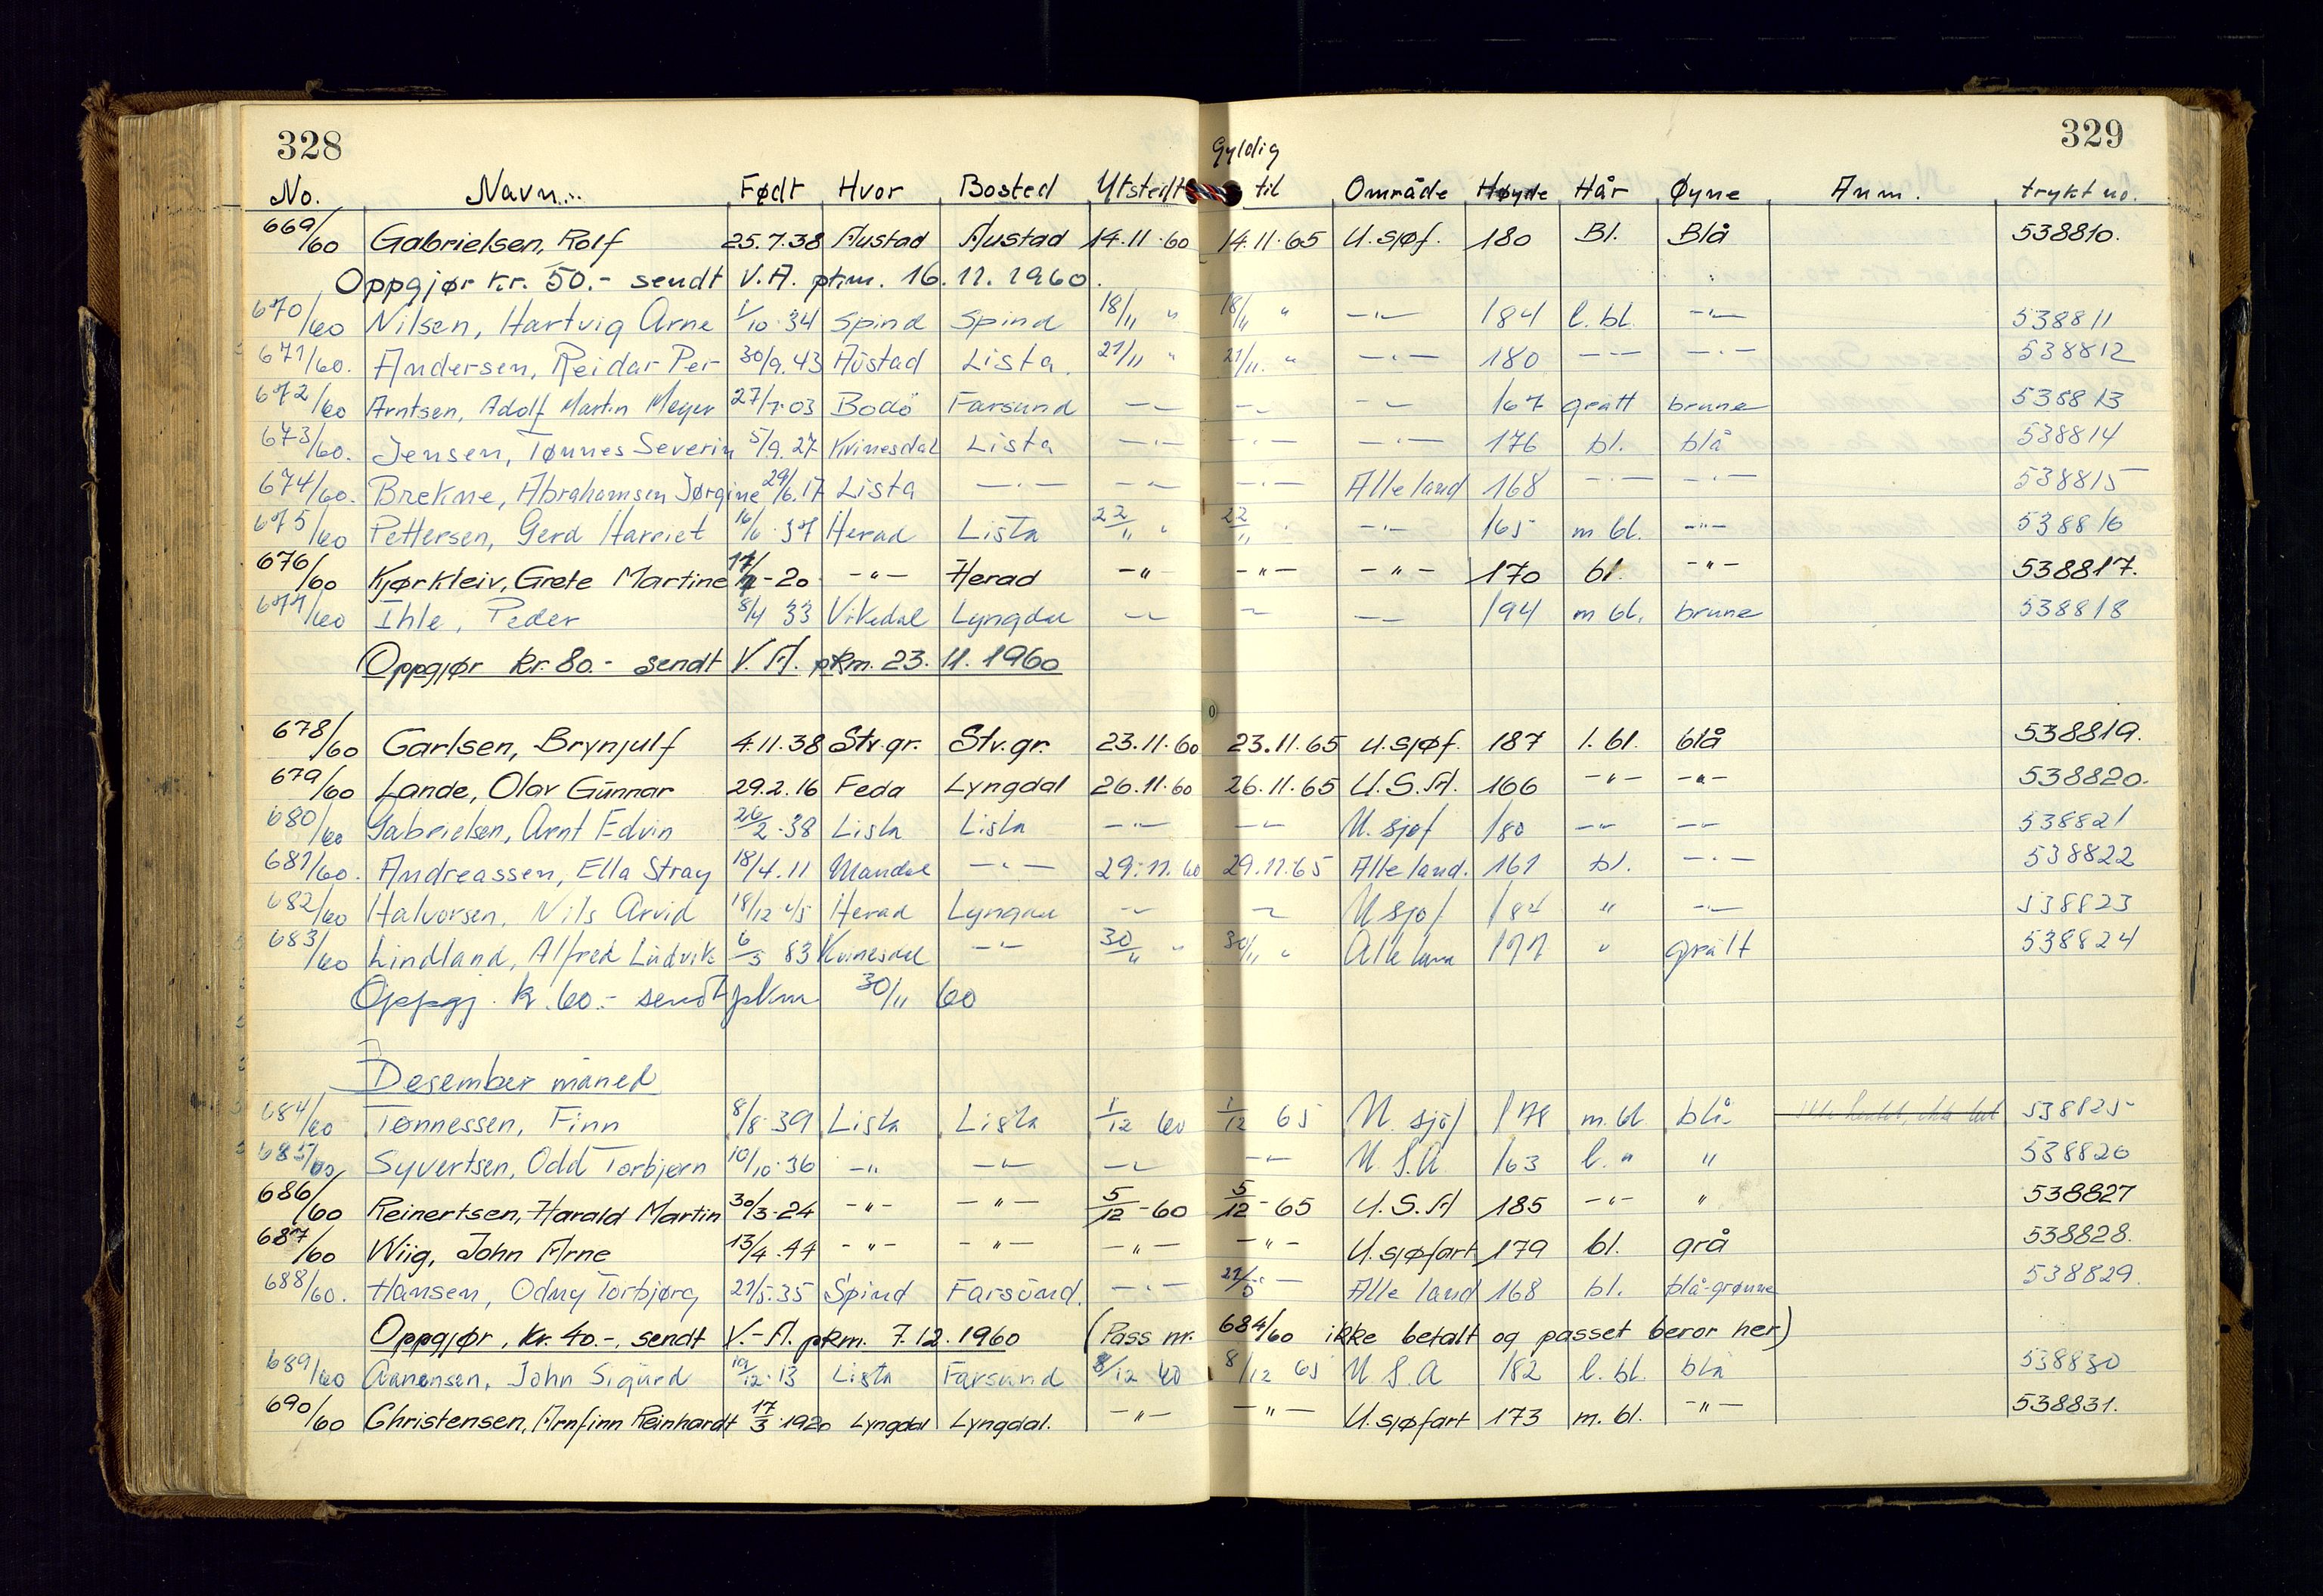 328
329
Gyldig
No. Navn Født Hvor Bosted Utstedt til Område Høyde Hår Øyne Anm. trykt no.
669/60 Gabrielsen, Rolf 25.7.38 Austad Austad 14.11.60 14.11.65 U.sjøf. 180 Bl. Blå 538810.
Oppgjør kr. 50.- sendt V.A. pkm. 16.11.1960.
670/60 Nilsen, Hartvig Arne 1/10.34 Spind Spind 18/11 " 18/11 " -"- 184 l.bl. -"- 538811
671/60. Andersen, Reidar Per 30/9.43 Austad Lista. 21/11 " 21/11. " -"- 180 -"- -"- 538812
672/60 Arntsen, Adolf Martin Meyer 27/7.03 Bodø Farsund -"- -"- -"- 167 grått brune 538813
673/60. Jensen, Tønnes Severin 5/9.27 Kvinesdal Lista -"- -"- -"- 176 bl. blå 538814
674/60. Brekne, Abrahamsen Jørgine 29/6.17 Lista -"- -"- -"- Alle land 168 -"- -"- 538815
675/60 Pettersen, Gerd Harriet 16/6.37 Herad Lista 22/11 " 22/11 " -"- 165 m bl. -"- 538816
676/60 Kjørkleiv, Grete Martine -20 -"- Herad -"- -"- -"- 170 bl. -"- 538817.
677/60 Ihle, Peder 8/4 33 Vikedal Lyngdal -"- -"- -"- 194 m bl. brune 538818
Oppgjør kr. 80.- sendt V.A. pkm. 23.11.1960
678/60 Carlsen, Brynjulf 4.11.38 Stv.gr. Stv.gr. 23.11.60 23.11.65 U.sjøf. 187 l.bl. blå 538819.
679/60 Lande, Olav Gunnar 29.2.16 Feda Lyngdal 26.11.60 26.11.65 U.S.A. 166 -"- -"- 538820.
680/60 Gabrielsen, Arnt Edvin 26/2.38 Lista Lista -"- -"- U.sjøf 180 -"- -"- 538821
681/60. Andreassen, Ella Stray 18/4.11 Mandal -"- 29.11.60 29.11.65 Alle land. 161 bl. -"- 538822
682/60 Halvorsen, Nils Arvid 18/12.45 Herad Lyngdal -"- -"- U sjøf 184 " -"- 538823
683/60 Lindland, Alfred Ludvik 6/3 83 Kvinesdal -"- 30/11 " 30/11 " Alle land 177 " grått 538824
Oppgj. kr. 60.- sendt pkm 30/11 60
Desember måned
684/60 Tønnessen, Finn 8/8.39 Lista Lista 1/12 60 1/12 65 U. sjøf 178 m.bl. blå 538825
685/60 Syvertsen, Odd Torbjørn 10/10.36 -"- -"- -"- -"- U.S.A. 163 l. " " 538826
686/60 Reinertsen, Harald Martin 30/3-24 -"- -"- 5/12-60 5/12-65 U.S.A 185 -"- " 538827
687/60 Wiig, John Arne 13/4.44 -"- -"- -"- -"- U.sjøfart 179 bl. grå 538828.
688/60. Hansen, Odny Torbjørg 21/5.35 Spind Farsund. -"- -"- Alle land 168 bl. blå-grønne 538829.
Oppgjør, kr. 40.-, sendt V.-A. pkm. 7.12.1960 (Pass nr. 684/60 ikke betalt og passet beror her)
689/60 Aanensen, John Sigurd 19/12.13 Lista Farsund 8/12 60 8/12 65 U.S.A 182 l.bl. blå 538830
690/60 Christensen, Arnfinn Reinhardt 17/3.1920 Lyngdal Lyngdal. -"- -"- U.sjøfart 173 m.bl. -"- 538831.